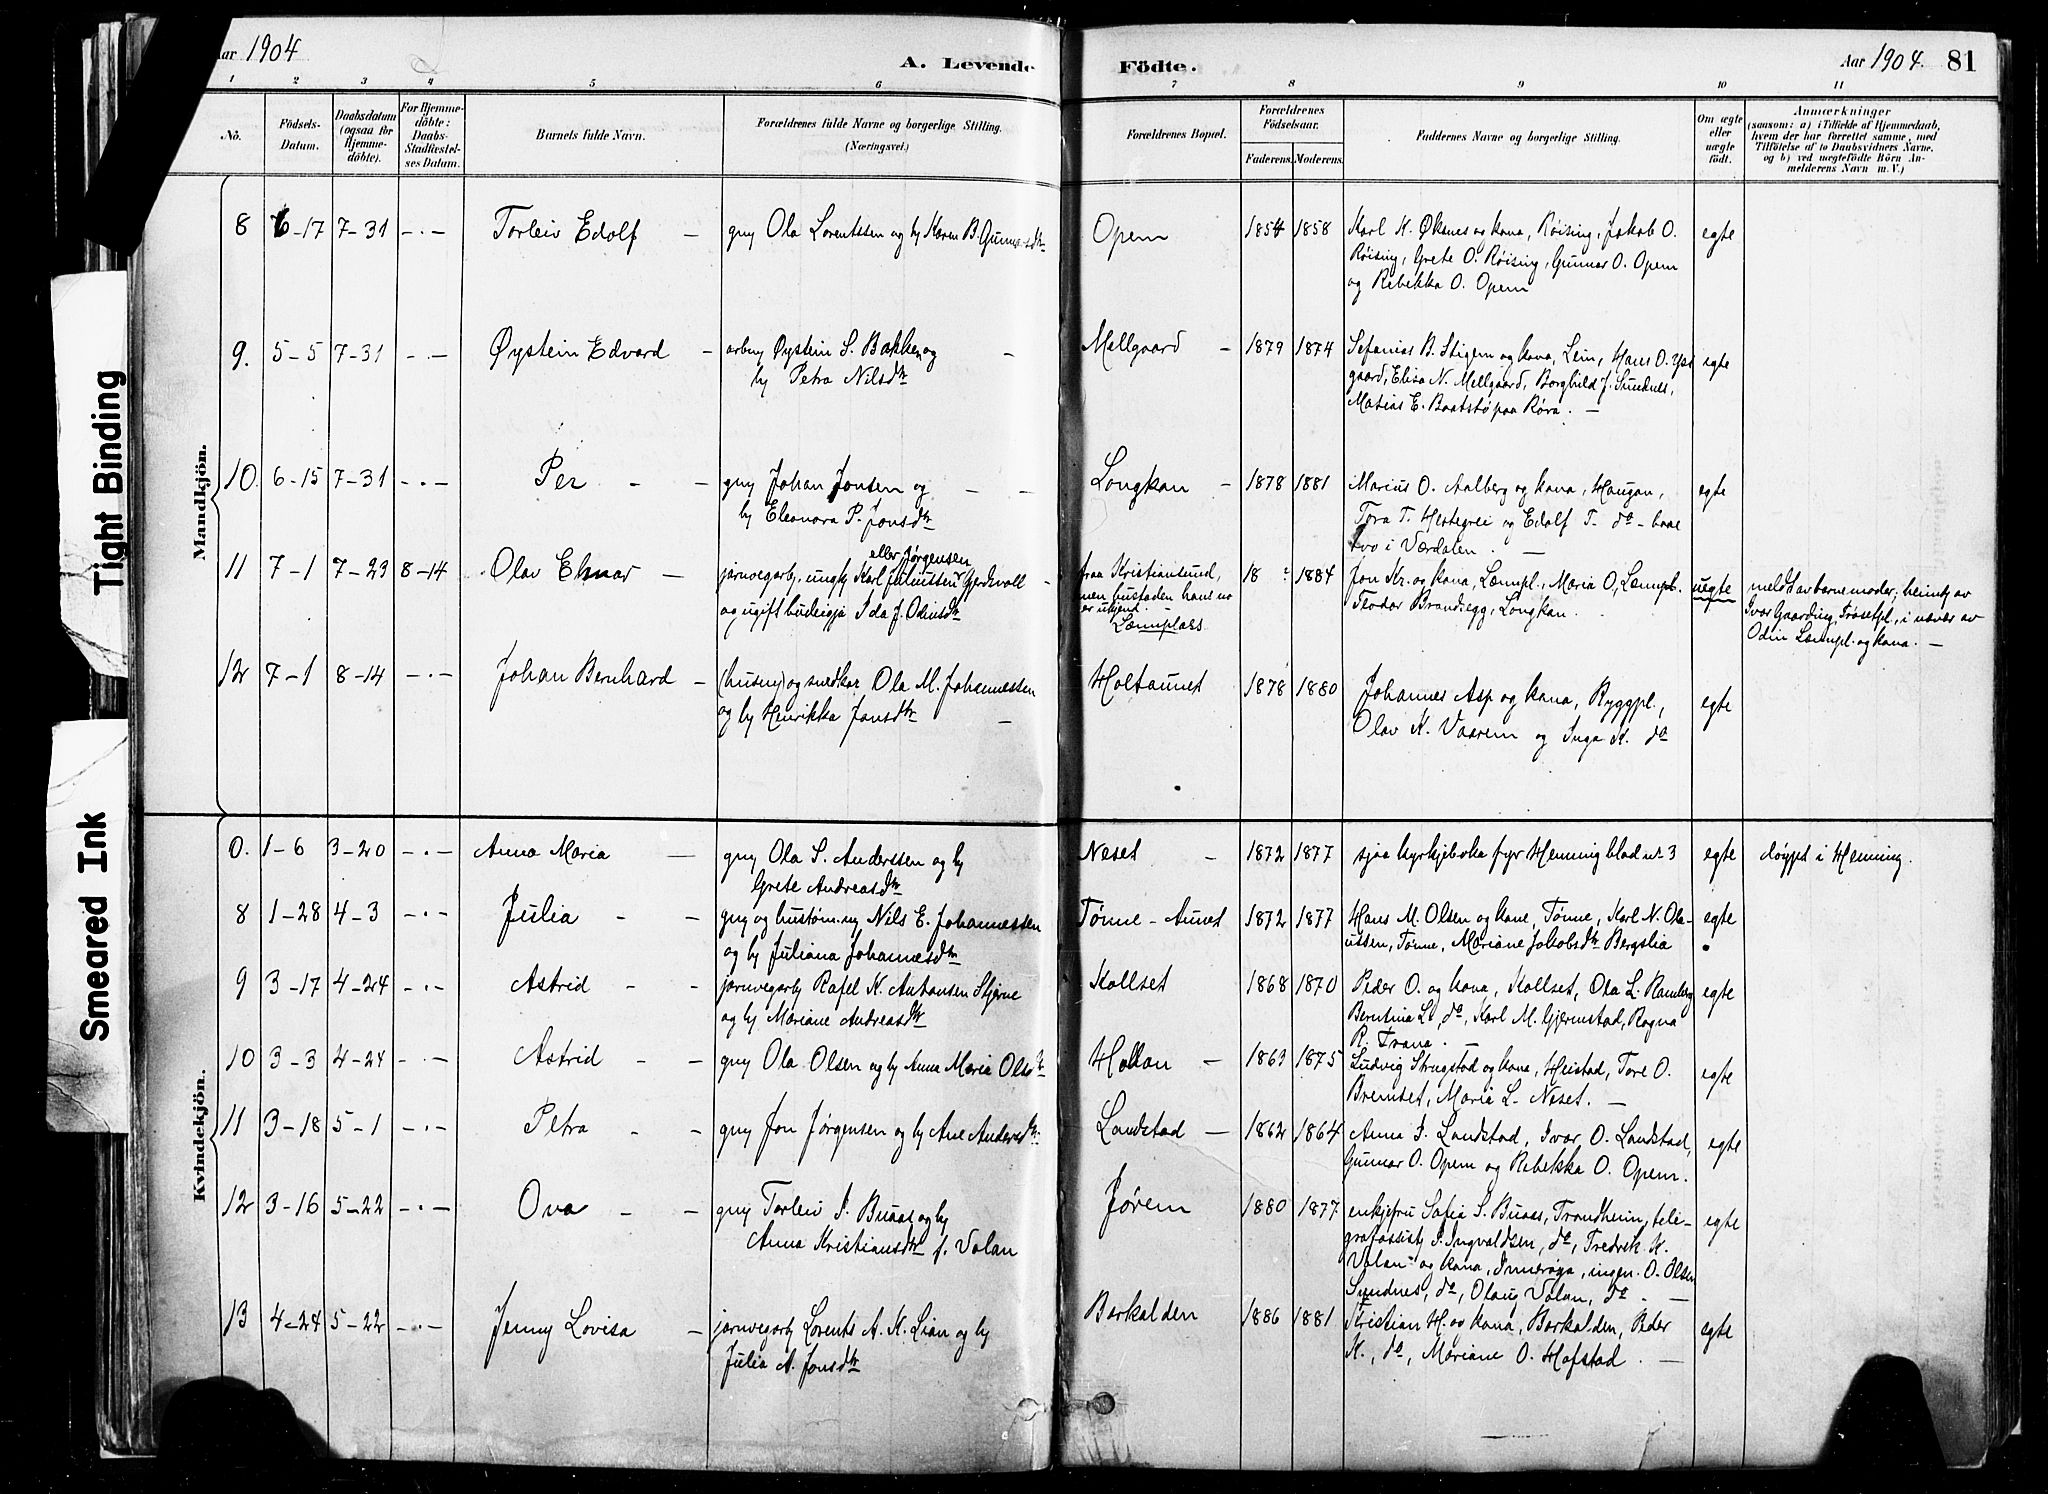 Aar 1904
A. Levende Födte.
Aar 1904. 81
1 2 3 4 5 6 7 8 9 10 11
No.
Födsels-Datum.
Daabsdatum (ogsaa for Hjemme-döbte).
For Hjemme-döbte: Daabs-Stadfæstel-ses Datum.
Barnets fulde Navn.
Forældrenes fulde Navne og borgerlige Stilling.
(Næringsvei.)
Forældrenes Bopæl.
Forældrenes Födselsaar.
Faderens. Moderens.
Faddernes Navne og borgerlige Stilling.
Om ægte eller uægte födt.
Anmærkninger
(saasom: a) i Tilfælde af Hjemmedaab,
hvem der har forrettet samme, med
Tilföielse af to Daabsvidners Navne,
og b) ved uægtefödte Börn An-
melderens Navn m. V.)
Tight Binding
Smeared Ink
Mandkjön.
8 6-17 7-31 -.- Torleiv Edolf - gmj Ola Lorentssen og hj Karen B. Gunnarsdtr Opem 1854 1858 Karl K. Øksnes og kona, Røising, Jakob O.
Røising, Grete O. Røising, Gunnar O. Opem
og Rebekka O. Opem
egte
9. 5-5 7-31 -.- Øystein Edvard - arbmj Øystein S. Bakken og
hj Petra Nilsdtr
Mellgaard - 1879 1874 Sefanias B. Stigem og kona, Lein, Hans O. Yss
gaard, Elisa N. Mellgaard, Borghild J. Sundnes,
Matias E. Baatstø paa Røra. -
egte
10. 6-15 7-31 -.- Per - - gmj Johan Jonsen og - -
hj Eleonora P. Jonsdtr
Longkan - 1878 1881 Marius O. Aalberg og kona, Haugan,
Tora T. Hestegrei og Edolf T. do - baae
tvo i Værdalen. -
egte
11 7-1 7-23 8-14 Olav Einar - jarnvegarb, ungkj Karl Juliussen eller Jørgensen Gjerdvoll -
og ugift budeigja Ida J. Odinsdtr
fraa Kristiansund,
men bustaden hans no
er ukjent.
Læmplass
18 ? 1884 Jon Kr. og kona, Læmpl., Maria O. Læmpl.
Teodor Brandsegg, Longkan.
uegte
meld av barnemoder; heimdp av
Ivar Gaarding, Trøsetpl., i nævær av
Odin Læmpl. og kona. -
12 7-1 8-14 -.- Johan Bernhard - (husmj) og snedkar Ola M. Johannessen
og hj Henrikka Jonsdtr -
Holtaunet 1878 1880 Johannes Asp og kona, Ryggpl.,
Olav K. Vaarem og Inga K. do
egte
Kvindekjön.
0. 1-6 3-20 -.- Anna Maria - gmj Ola S. Anderssen og hj
Grete Andreasdtr
Neset - 1872 1877 sjaa kyrkjeboka fyr Henning blad nr 3 egte døypt i Henning.
8 1-28 4-3 -.- Julia - - gmj og hustøm.mj Nils E. Johannessen
og hj Juliana Johannesdtr
Tønne-Aunet 1872 1877 Hans M. Olsen og kone, Tønne, Karl N. Ola-
ussen, Tønne, Mariane Jakobsdtr Bergslia
egte
9 3-17 4-24 -.- Astrid - - jarnvegarb Rafel K. Antonsen Stjerne
og hj Mariane Andreasdtr
Kollset 1868 1870 Peder O. og kona, Kollset, Ola L. Ramberg
Berntina L. do, Karl M. Gjermstad, Ragna
R. Trana. -
egte
10 3-3 4-24 -.- Astrid - - gmj Ola Olsen og hj Anna Maria Olsdtr Hollan - 1863 1875 Ludvig Strugstad og kona, Heistad, Tore O.
Bremset, Maria L. Neset. -
egte
11 3-18 5-1 -.- Petra - - gmj Jon Jørgensen og hj Ane Andersdtr Landstad - 1862 1864 Anna J. Landstad, Ivar O. Landstad,
Gunnar O. Opem og Rebekka O. Opem.
egte
12 3-16 5-22 -.- Ova - - gmj Torleiv J. Buaas og hj
Anna Kristiansdtr f. Volan
Jørem 1880 1877 enkjefru Sofia S. Buaas, Trondheim, tele-
grafassist J. Ingvaldsen, do, Fredrik K.
Volan og kona, Inderøya, ingen. O. Olsen
Sundnes, do, Olaug Volan, do. -
egte
13 4-24 5-22 -.- Jenny Lovisa - jarnvegarb Lorents A. K. Lian og hj
Julia A. Jonsdtr
Borkalden 1886 1881 Kristian H. og kona, Borkalden, Peder
K., do, Mariane O. Hofstad. -
egte